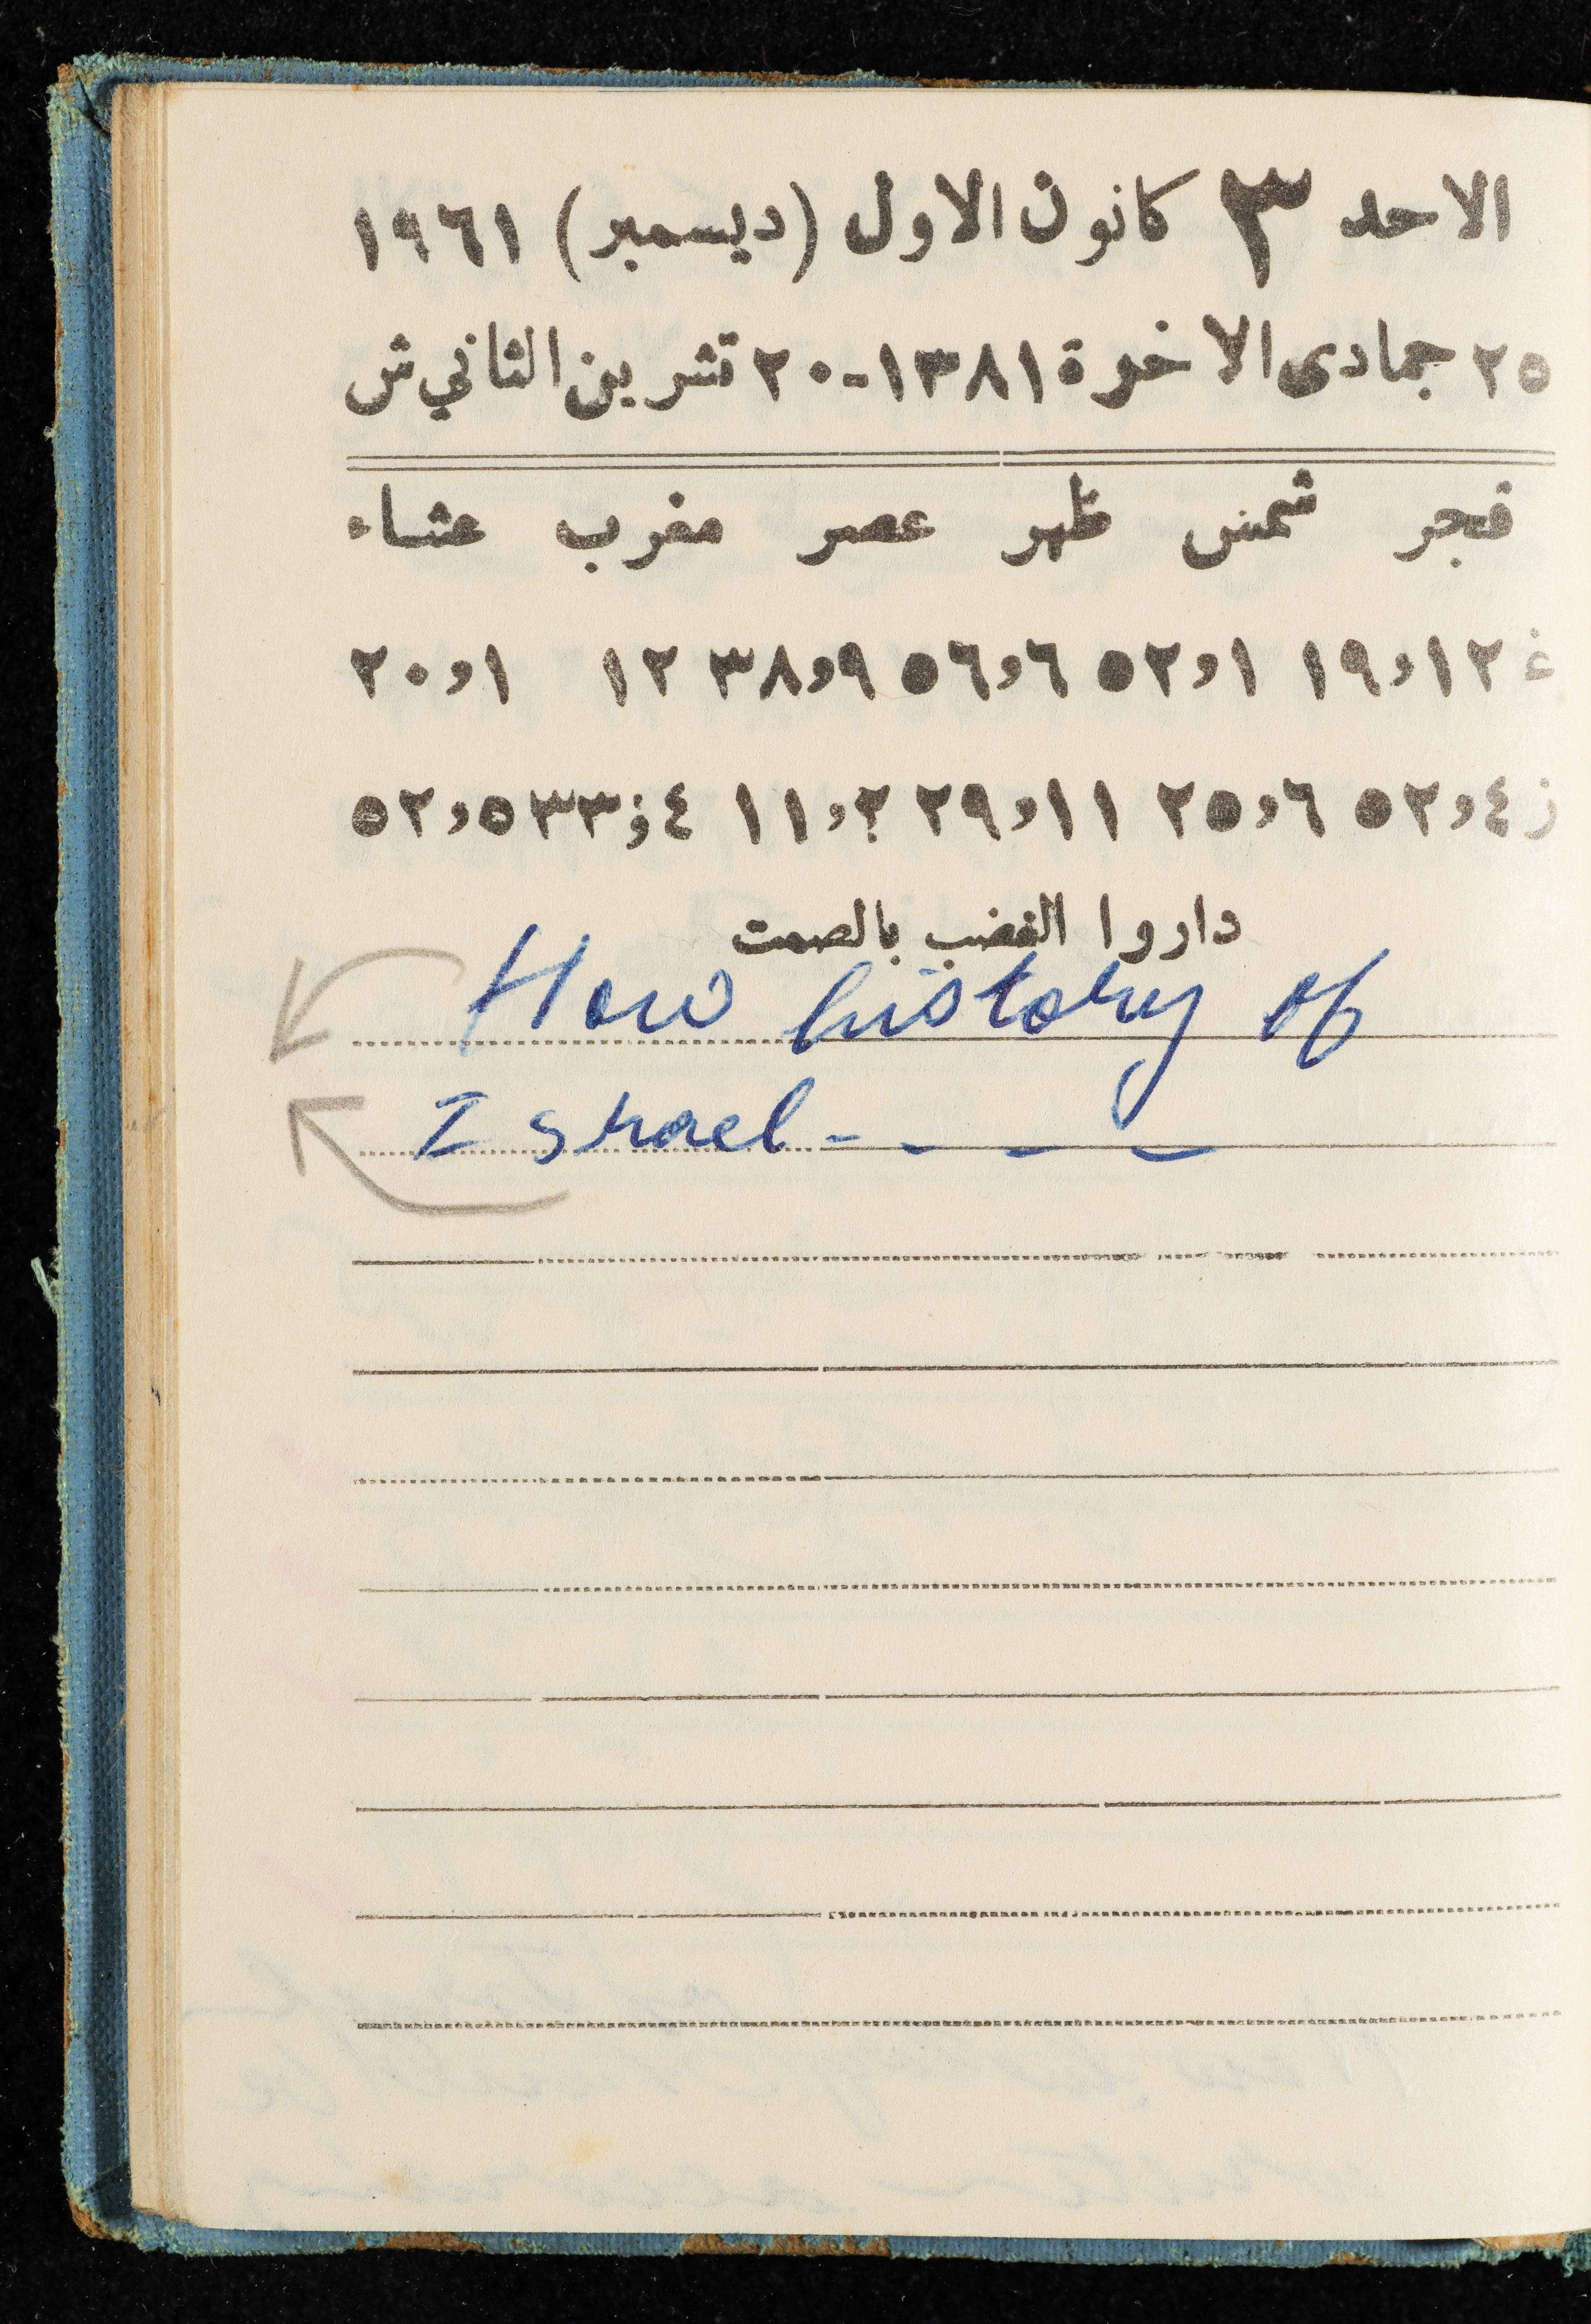 الاحد ٣ كانون الاول (ديسمبر) ١٩٦١
٢٥ جمادى الاخرة ١٣٨١-٢٠ تشرين الثاني ش
فجر شمس ظهر عصر مغرب عشاء
غ ١٢و١٩ ١و٥٢ ٦و٥٦ ٩و٣٨ ١٢ ١و٢٠
ز ٤و٥٢ ٦و٢٥ ١١و٢٩ ٢و١١ ٤و٣٣ ٥و٥٢
داروا الغضب بالصمت
How history of
Israel - - - -